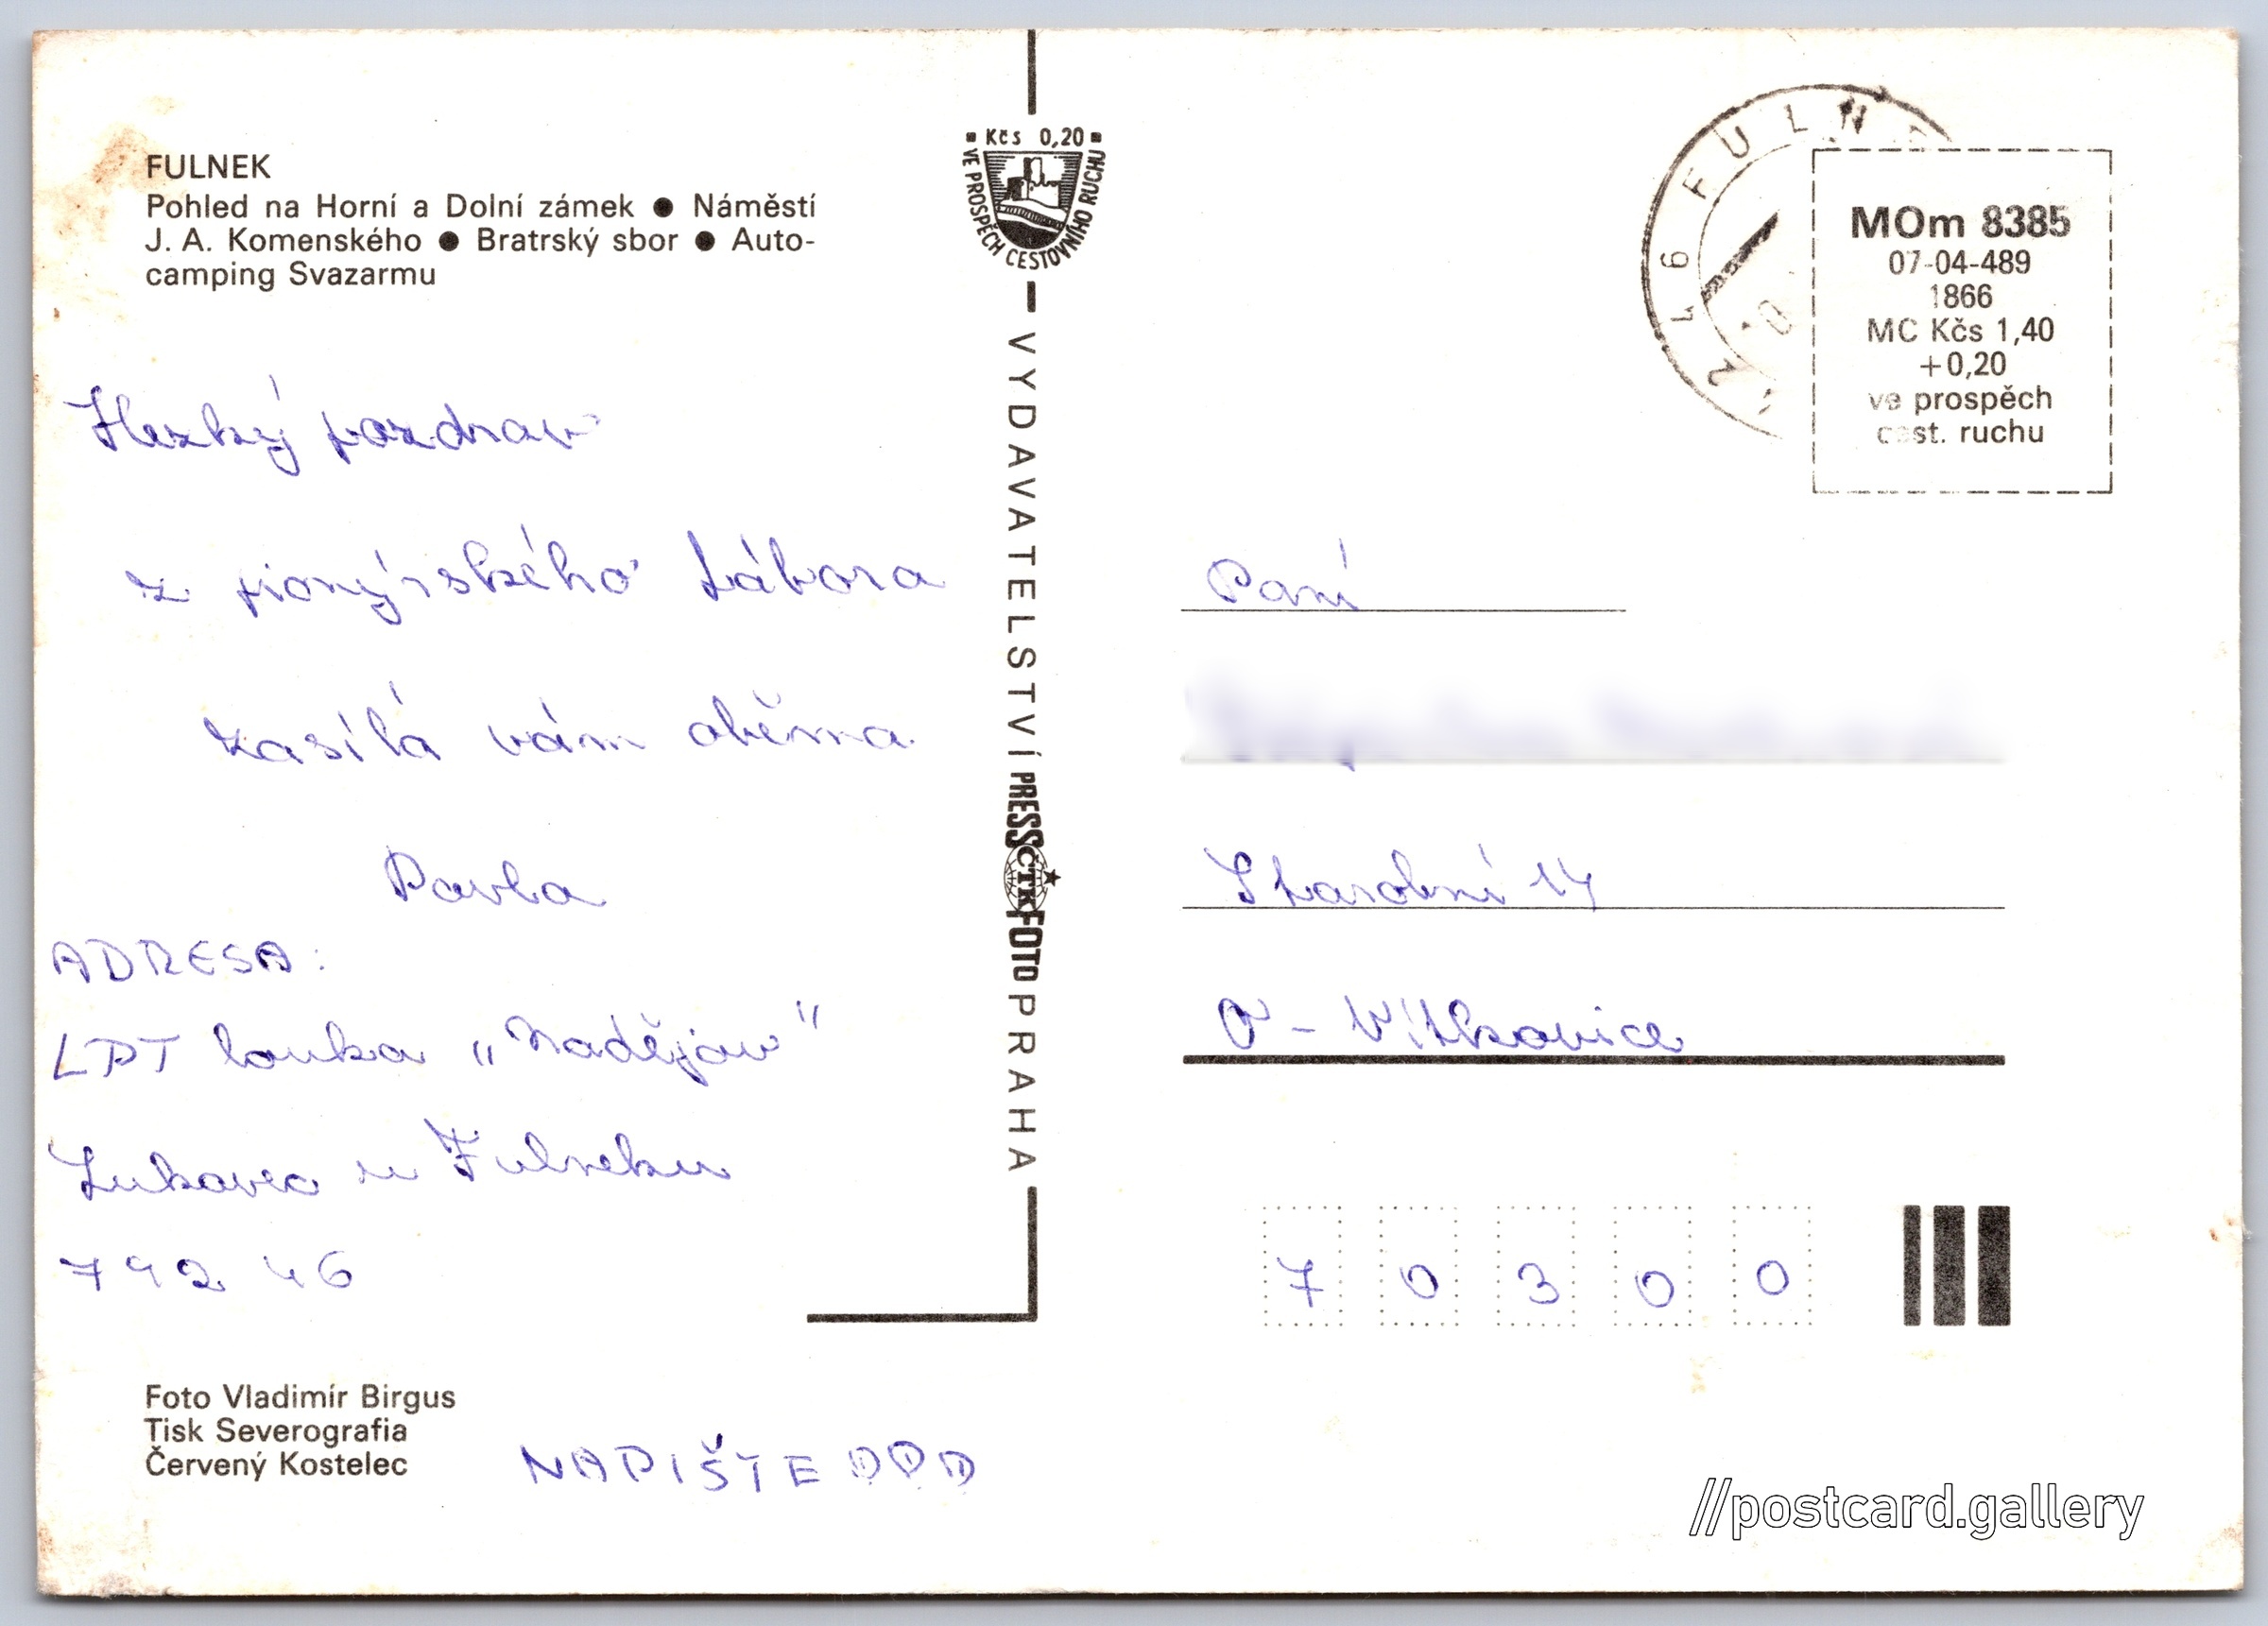 FULNEK
Pohled na Horní a Dolní zámek ● Náměstí
J. A. Komenského ● Bratrský sbor ● Auto-
camping Svazarmu
Hezký pozdrav
z pionýrského tábora
zasílá vám oběma
Pavla
ADRESA:
LPT louka „Nadějov"
Lukavec u Fulneku
792 46
Foto Vladimír Birgus
Tisk Severografia
Červený Kostelec
NAPIŠTE
Kčs 0,20
VE PROSPĚCH CESTOVNÍHO RUCHU
VYDAVATELSTVÍ PRESSFOTO PRAHA
ČTK
FULN
MOm 8385
07-04-489
1866
MC Kčs 1,40
+0,20
ve prospěch
cest. ruchu
Paní
14
O - Vítkovice
70300
//postcard.gallery